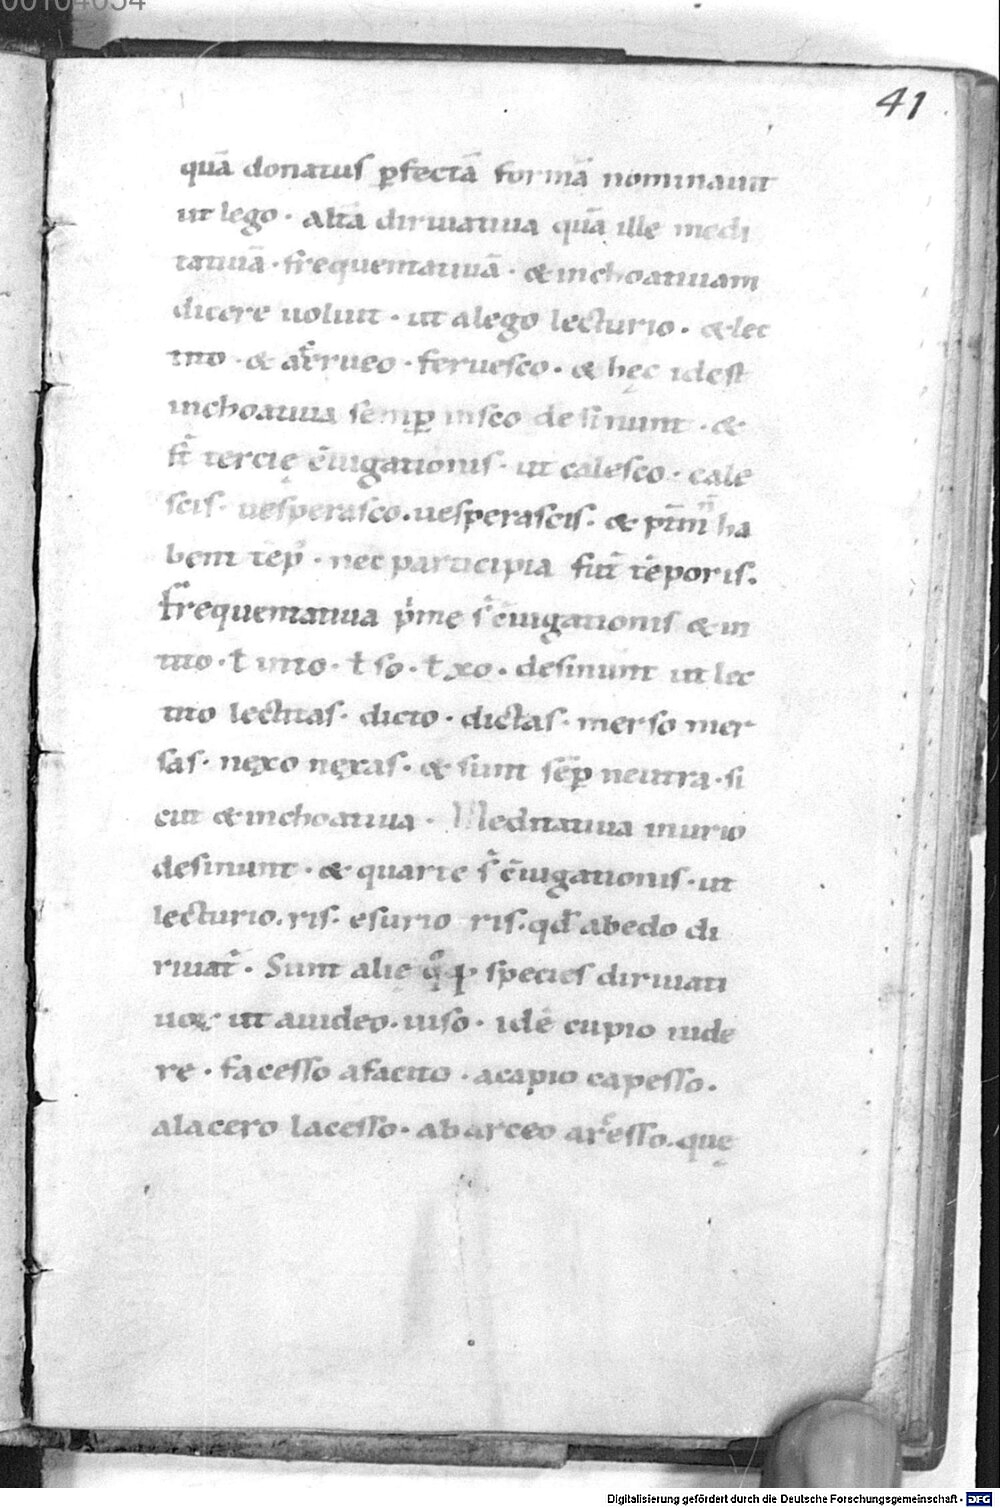 00104054
41
quā donatus ꝑfectā formā nominauit
ut lego · altā diriuatiua quā ille medi
tatiuā · frequentatiuā · & inchoatiuam
dicere uoluit · ut a lego lecturio · & lec
tito · & a ferueo · feruesco · & hęc idest
inchoatiua semꝑ in sco desinunt · &
st̄ tercię c̄iugationis · ut calesco · cale
scis · uesperasco · uesperascis · & p̄t̄m n̄ ha
bent tēp̄ · nec participia futī tēporis.
Frequentatiua p̄mę s̄ c̄iugationis & in
tito · ł · ł so · ł xo · desinunt ut lec
tito lectitas · dicto · dictas · merso mer
sas · nexo nexas · & sunt sēꝑ neutra · si
cut & inchoatiua · Meditatiua in urio
desinunt · & quarte s̄ c̄iugationis · ut
lecturio · ris · esurio ris · qd̄ ab edo di
riuat̄ · Sunt alię q̄q; species diriuati
uoꝝ ut a uideo · uiso · idē cupio uide
re · facesso a facito · a capio capesso ·
a lacero lacesso · ab arceo arcesso · quę
Digitalisierung gefördert durch die Deutsche Forschungsgemeinschaft - DFG